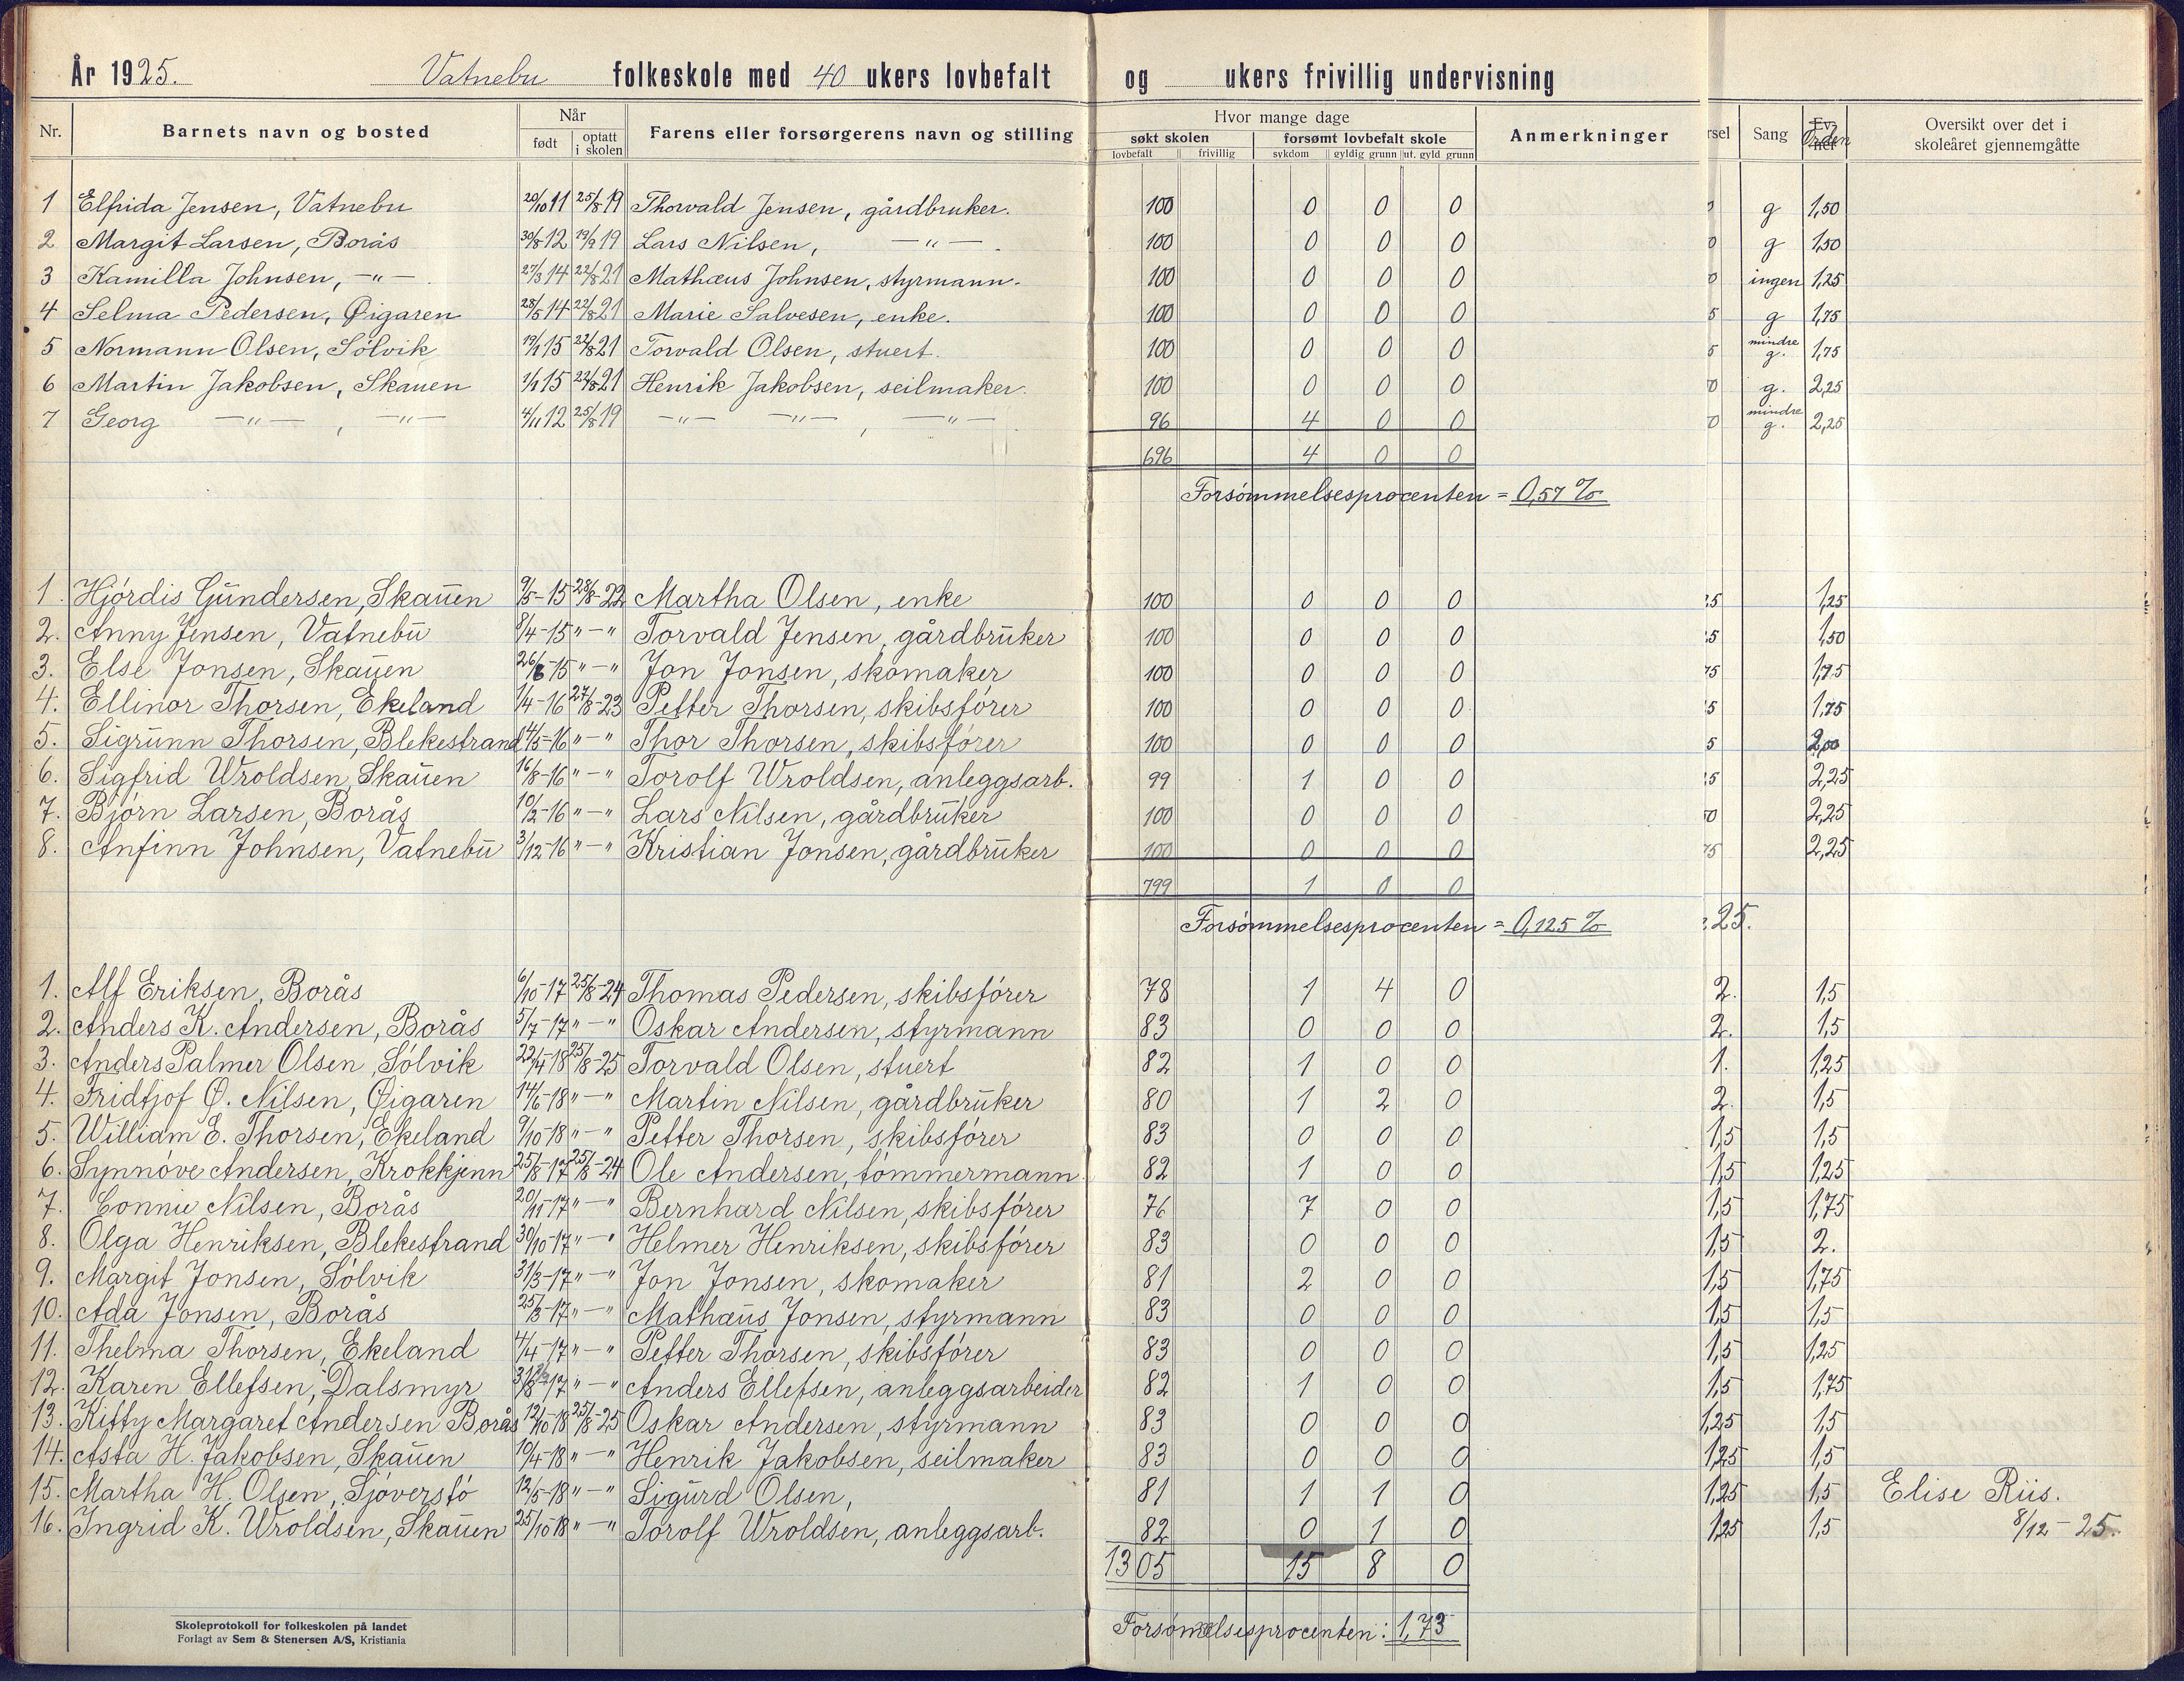 År 1925. Vatnebu folkeskole med 40 ukers lovbefalt og ukers frivillig undervisning
Nr. Barnets navn og bosted Når født optatt i skolen Farens eller forsørgerens navn og stilling Hvor mange dage søkt skolen lovbefalt frivillig forsømt lovbefalt skole sykdom gyldig grunn ut. gyld grunn Anmerkninger rsel Sang Orden Oversikt over det i skoleåret gjennemgåtte
1 Elfrida Jensen, Vatnebu 20/10 11 25/8 19 Thorvald Jensen, gårdbruker. 100 0 0 0 g 1,50
2 Margit Larsen, Borås 30/8 12 19/9 19 Lars Nilsen, —"—. 100 0 0 0 0 g 1,50
3 Kamilla Johnsen, —"—. 27/3 14 22/8 21 Mathæus Johnsen, styrmann. 100 0 0 0 0 ingen 1,25
4 Selma Pedersen, Øigaren 28/5 14 22/8 21 Marie Salvesen, enke. 100 0 0 0 5 g 1,75
5 Normann Olsen, Sölvik 19/1 15 22/8 21 Torvald Olsen, stuert. 100 0 0 0 5 mindre g. 1,75
6 Martin Jakobsen, Skauen 1/1 15 22/8 21 Henrik Jakobsen, seilmaker. 100 0 0 0 0 g. 2,25
7 Georg —"—, —"— 4/11 12 25/8 19 —"— —"—, —"— 96 4 0 0 0 mindre g. 2,25
696 4 0 0
Forsömmelsesprocenten = 0,57 %
1. Hjördis Gundersen, Skauen 9/5-15 28/8-22 Martha Olsen, enke 100 0 0 0 25 1,25
2. Anny Jensen, Vatnebu 8/4-15 "—" Torvald Jensen, gårdbruker 100 0 0 0 25 1,50
3. Else Jonsen, Skauen 26/6-15 "—" Jon Jonsen, skomaker 100 0 0 0 75 1,75
4. Ellinor Thorsen, Ekeland 1/4-16 27/8-23 Petter Thorsen, skibsförer 100 0 0 0 5 1,75
5. Sigrunn Thorsen, Blekestrand 4/5-16 "—" Thor Thorsen, skibsförer 100 0 0 0 5 2,00
6. Sigfrid Wroldsen, Skauen 16/8-16 "—" Torolf Wroldsen, anleggsarb. 99 1 0 0 25 2,25
7. Björn Larsen, Borås 10/2-16 "—" Lars Nilsen, gårdbruker 100 0 0 0 50 2,25
8. Anfinn Johnsen, Vatnebu 3/12-16 "—" Kristian Jonsen, gårdbruker 100 0 0 0 75 2,25
799 1 0 0
Forsömmelsesprocenten = 0,125 % 25.
1. Alf Eriksen, Borås 6/10-17 25/8-24 Thomas Pedersen, skibsförer 78 1 4 0 2. 1,5
2. Anders K. Andersen, Borås 5/7-17 "—" Oskar Andersen, styrmann 83 0 0 0 2. 1,5
3. Anders Palmer Olsen, Sölvik 22/4-18 25/8-25 Torvald Olsen, stuert 82 1 0 0 1. 1,25
4. Fridtjof Ø. Nilsen, Øigaren 14/6-18 "—" Martin Nilsen, gårdbruker 80 1 2 0 2. 1,5
5. William E. Thorsen, Ekeland 9/10-18 "—" Petter Thorsen, skibsförer 83 0 0 0 1,5 1,5
6. Synnöve Andersen, Krokkjenn 25/8-17 25/8-24 Ole Andersen, tömmermann. 82 1 0 0 1,5 1,25
7. Connie Nilsen, Borås 20/11-17 "—" Bernhard Nilsen, skibsförer 76 7 0 0 1,5 1,75
8. Olga Henriksen, Blekestrand 30/10-17 "—" Helmer Henriksen, skibsförer 83 0 0 0 1,5 2.
9. Margit Jonsen, Sölvik 31/3-17 "—" Jon Jonsen, skomaker 81 2 0 0 1,5 1,75
10. Ada Jonsen, Borås 25/3-17 "—" Mathæus Jonsen, styrmann 83 0 0 0 1,5 1,5
11. Thelma Thorsen, Ekeland 4/4-17 "—" Petter Thorsen, skibsförer 83 0 0 0 1,5 1,25
12. Karen Ellefsen, Dalsmyr 17 "—" Anders Ellefsen, anleggsarbeider 82 1 0 0 1,5 1,75
13. Kitty Margaret Andersen Borås 12/10-18 25/8-25 Oskar Andersen, styrmann 83 0 0 0 1,25 1,5
14. Asta H. Jakobsen, Skauen 10/4-18 "—" Henrik Jakobsen, seilmaker 83 0 0 0 1,25 1,5
15. Martha H. Olsen, Sjöverstö 12/5-18 "—" Sigurd Olsen, 81 1 1 0 1,25 1,5 Elise Riis.
16. Ingrid K. Wroldsen, Skauen 25/10-18 "—" Torolf Wroldsen, anleggsarb. 82 0 1 0 1,25 1,5 8/12-25.
1305 15 8 0
Forsömmelsesprocenten: 1,73
Skoleprotokoll for folkeskolen på landet
Forlagt av Sem & Stenersen A/S, Kristiania